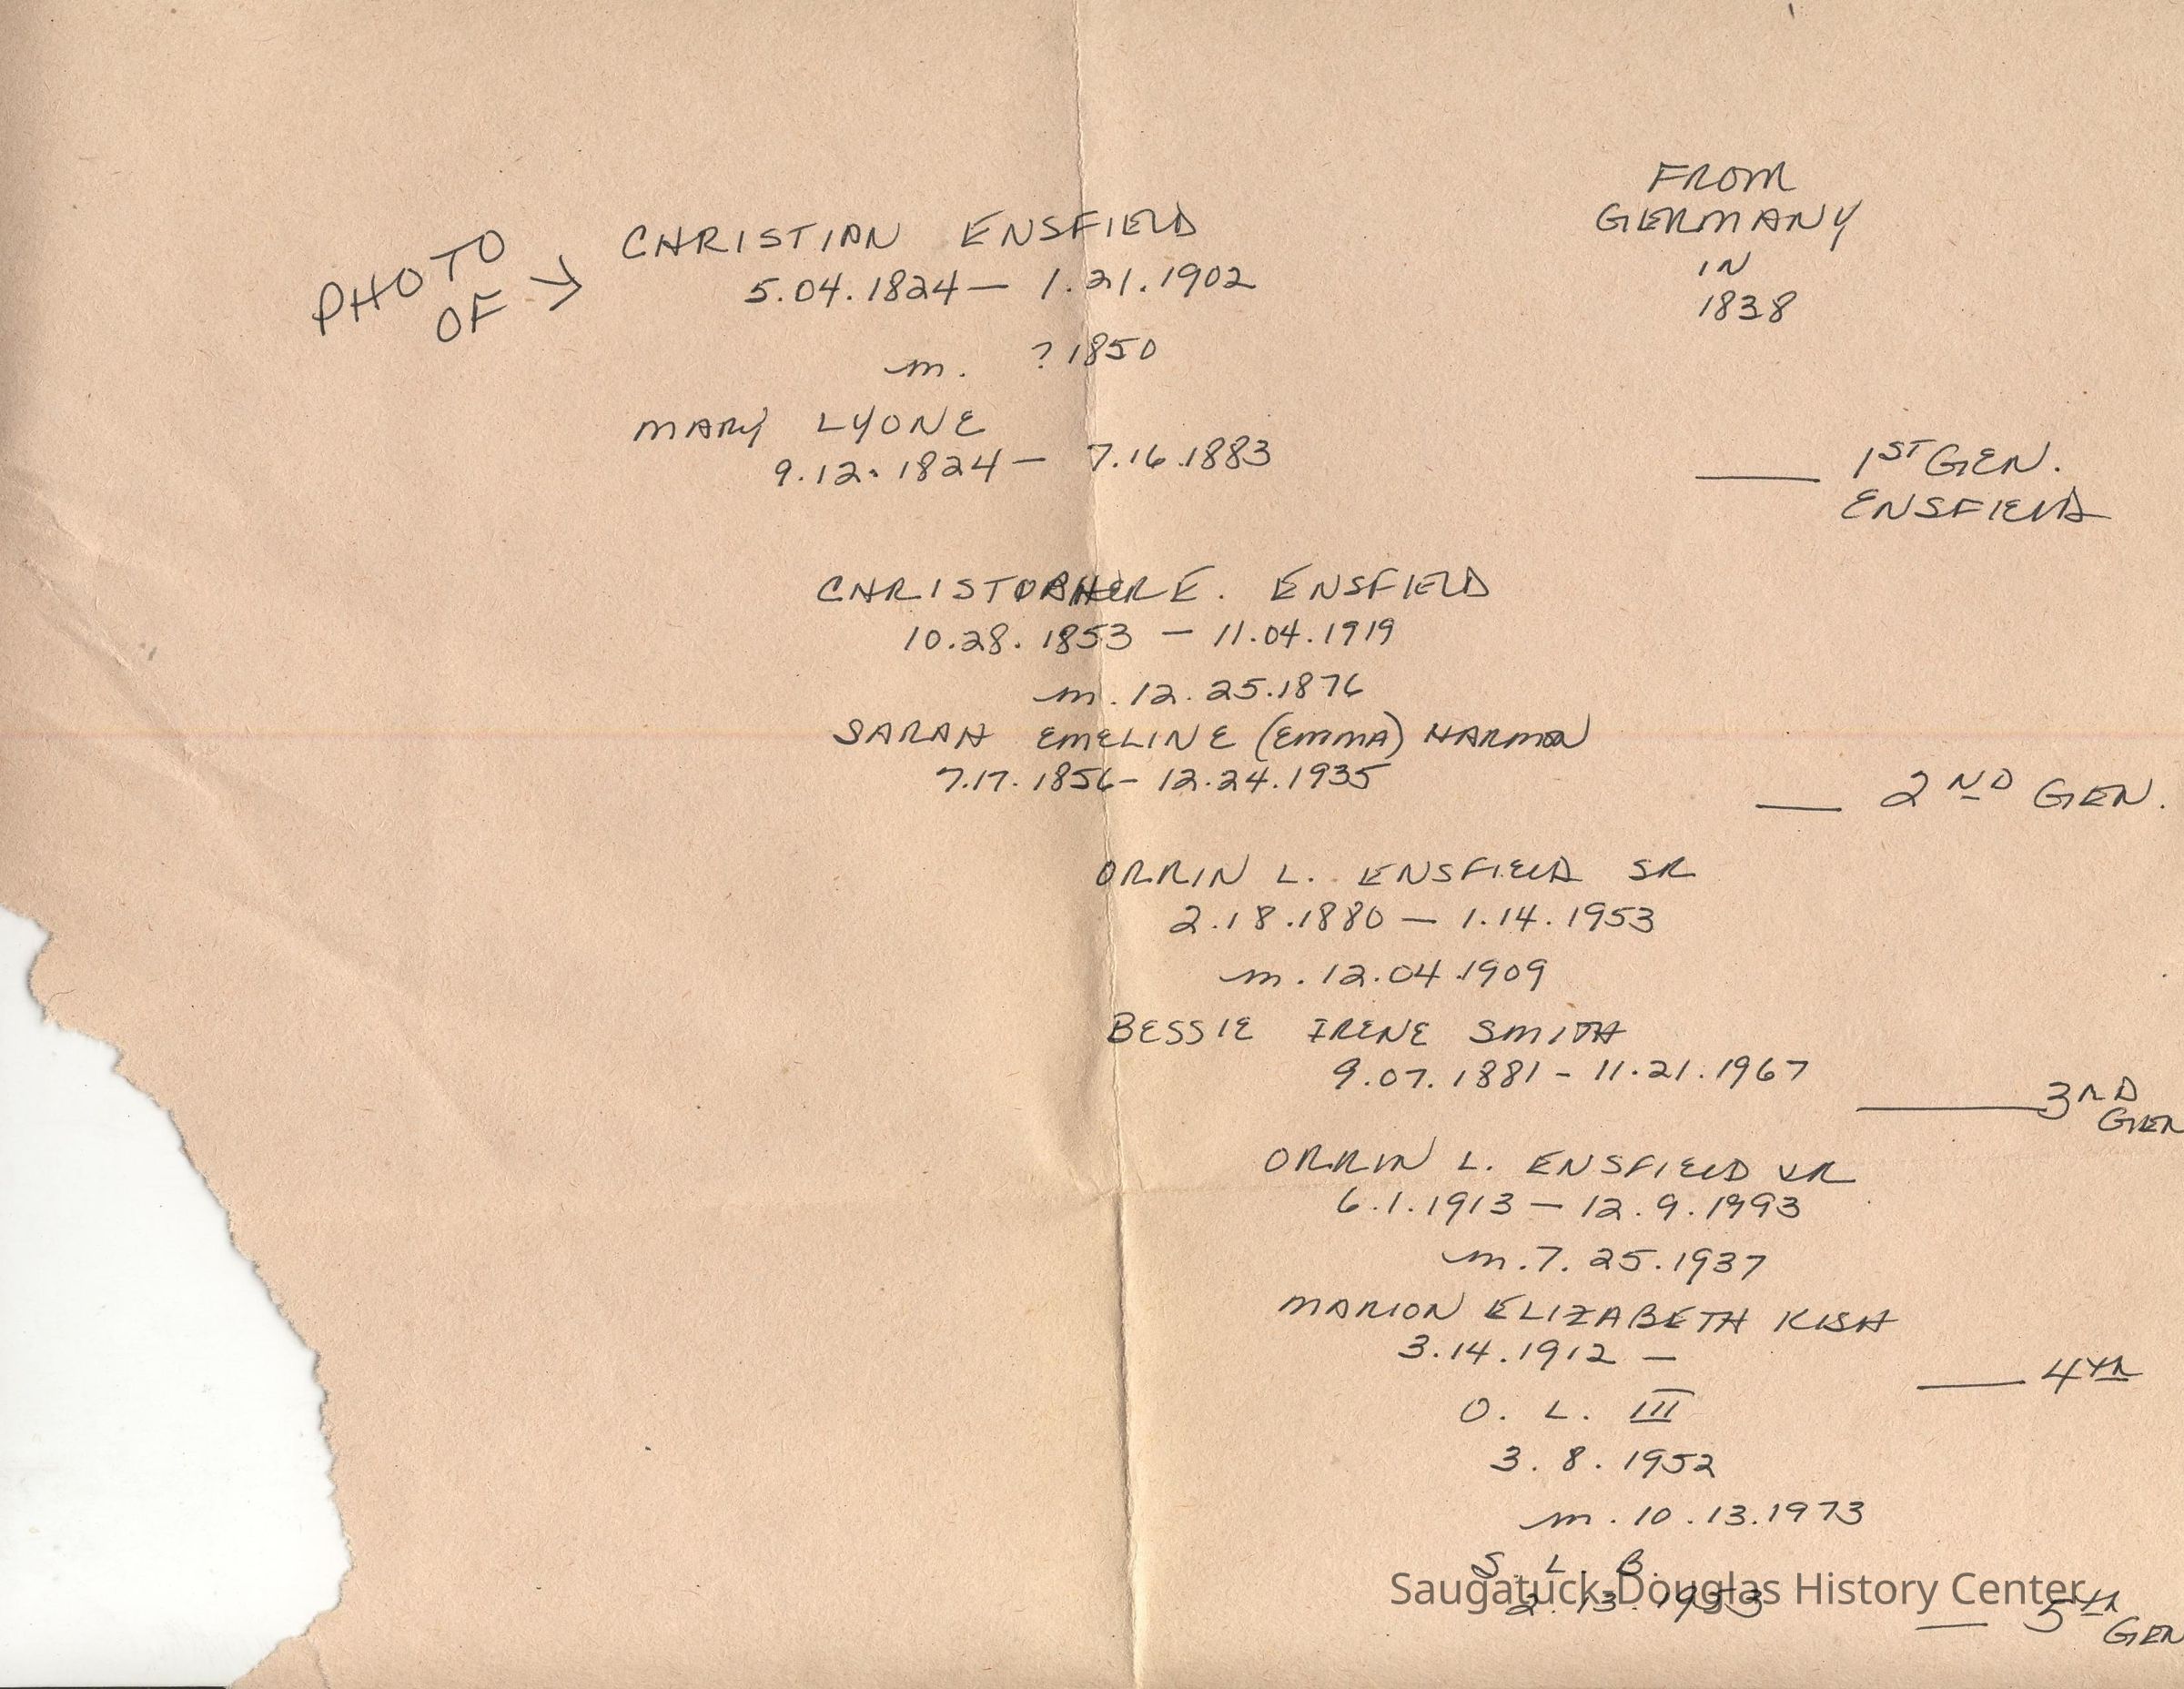 FROM
GERMANY
IN
1838
PHOTO
OF →
CHRISTIAN ENSFIELD
5.04.1824 — 1.21.1902
m. ? 1850
MARY LYONE
9.12.1824 — 7.16.1883
— 1ST GEN.
ENSFIELD
CHRISTOPHER E. ENSFIELD
10.28.1853 — 11.04.1919
m. 12.25.1876
SARAH EMELINE (EMMA) HARMON
7.17.1856 - 12.24.1935
— 2ND GEN.
ORRIN L. ENSFIELD SR
2.18.1880 — 1.14.1953
m. 12.04.1909
BESSIE IRENE SMITH
9.07.1881 - 11.21.1967
— 3RD
GEN
ORRIN L. ENSFIELD JR
6.1.1913 — 12.9.1993
m. 7.25.1937
MARION ELIZABETH KISH
3.14.1912 —
— 4TH
O. L. III
3.8.1952
m. 10.13.1973
S. L. B.
2.13.1953
Saugatuck-Douglas History Center
— 5TH
GEN